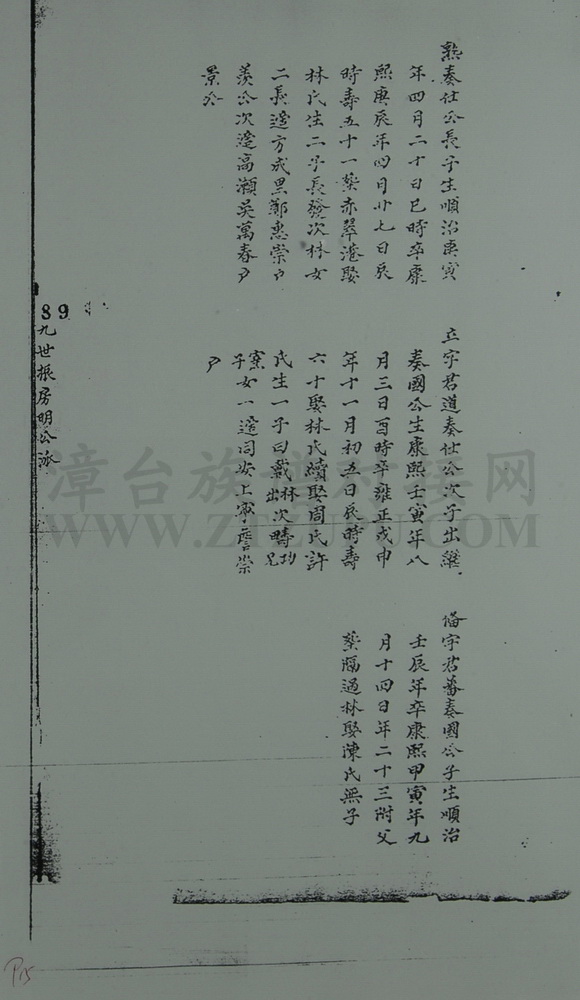 熟奏仕公長子生順治庚寅
年四月二十日巳時卒康
熙庚辰年四月廿七日辰
時壽五十一葬赤翠港娶
林氏生二子長發次林女
二長適方戍黑鄭惠崇户
羡公次適高瀨吳萬春户
景公
立字君道奏仕公次子出繼
奏國公生康熙壬寅年八
月三日酉時卒雍正戊申
年十一月初五日辰時壽
六十娶林氏續娶周氏許
氏生一子曰戴林出次疇
子女一適同安上寧
户
俻字君蕃奏國公子生順治
壬辰年卒康熙甲寅年九
月十四日年二十三附父
葬隔過林娶陳氏無子
89
九世振房明公派
漳台族谱对接网
P15